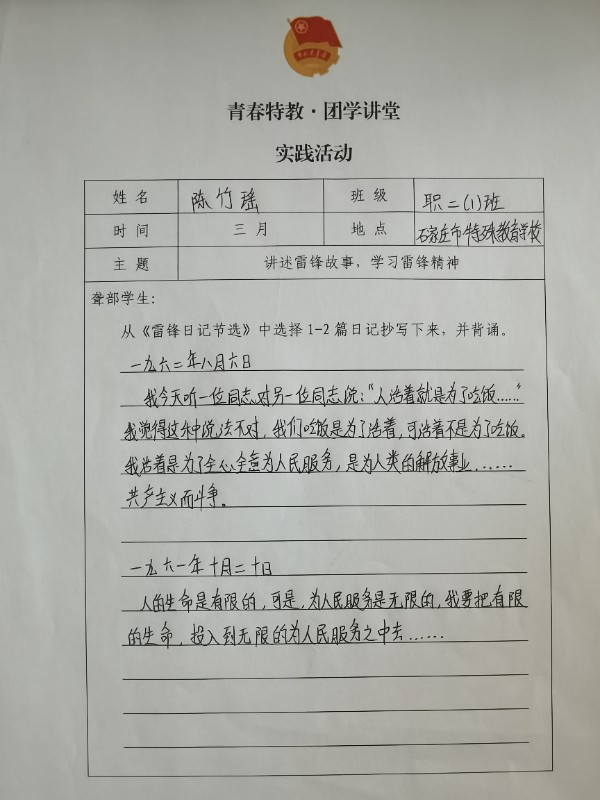 青春特教·团学讲堂
实践活动
姓名 陈竹瑶 班级 职二(1)班
时间 三月 地点 石家庄市特殊教育学校
主题 讲述雷锋故事，学习雷锋精神
聋部学生：
从《雷锋日记节选》中选择1-2篇日记抄写下来，并背诵。
一九六二年八月六日
我今天听一位同志对另一位同志说："人活着就是为了吃饭……"
我觉得这种说法不对，我们吃饭是为了活着，可活着不是为了吃饭。
我活着是为了全心全意为人民服务，是为人类的解放事业……
共产主义而斗争。
一九六一年十月二十日
人的生命是有限的，可是，为人民服务是无限的，我要把有限
的生命，投入到无限的为人民服务之中去……